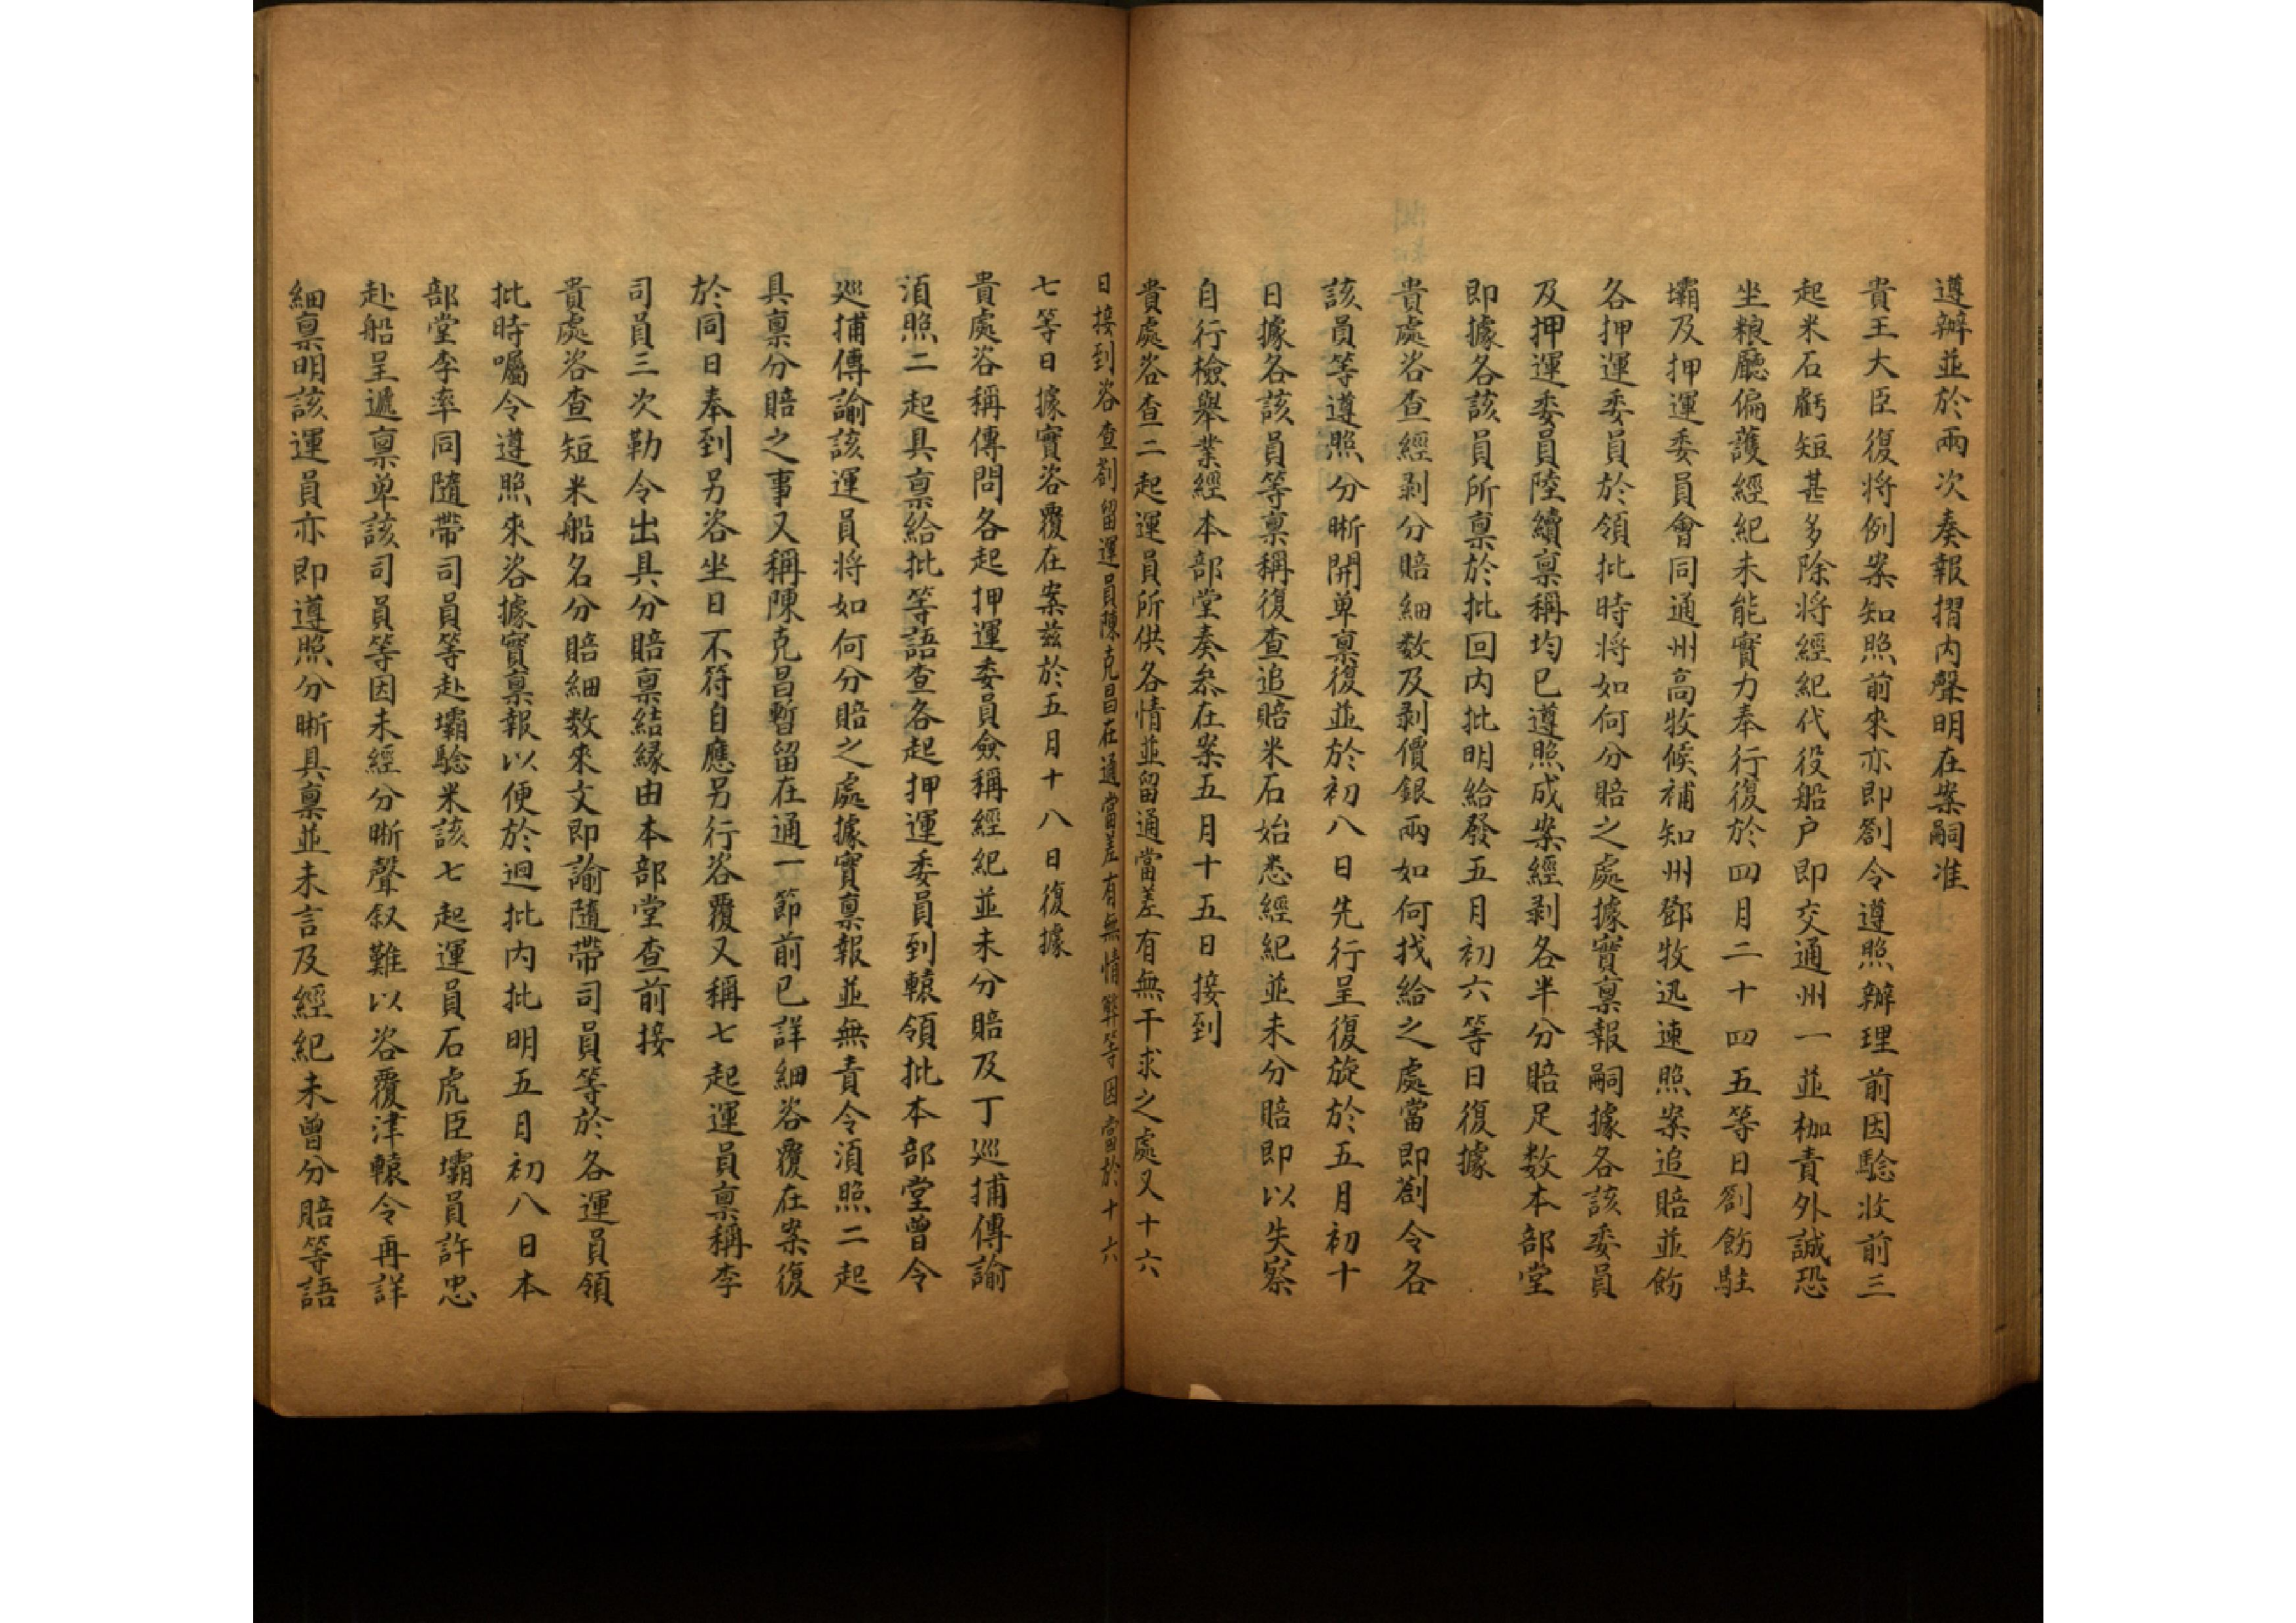 遵辦並於兩次奏報摺内聲明在案嗣准
貴王大臣復将例案知照前來亦即劄令遵照辦理前因驗收前三
起米石虧短甚多除将經紀代役船户即交通州一並枷責外誠恐
坐粮廳偏護經紀未能實力奉行復於四月二十四五等日劄飭駐
壩及押運委員會同通州高牧候補知州鄧牧迅速照案追賠並飭
各押運委員於領批時将如何分賠之處據實禀報嗣據各該委員
及押運委員陸續禀稱均已遵照成案經剥各半分賠足数本部堂
即據各該員所禀於批回内批明給發五月初六等日復據
貴處咨查經剥分賠細数及剥價銀兩如何找給之處當即劄令各
該員等遵照分晰開单禀復並於初八日先行呈復旋於五月初十
日據各該員等禀稱復查追賠米石始悉經紀並未分賠即以失察
自行檢舉業經本部堂奏叅在案五月十五日接到
貴處咨查二起運員所供各情並留通當差有無干求之處又十六
日接到咨查劄留運員陳克昌在通當差有無情弊等因當於十六
七等日據實咨覆在案兹於五月十八日復據
貴處咨稱傳問各起押運委員僉稱經紀並未分賠及丁巡捕傳諭
湏照二起具禀給批等語查各起押運委員到轅領批本部堂曾令
巡捕傳諭該運員将如何分賠之處據實禀報並無責令湏照二起
具禀分賠之事又稱陳克昌暫留在通一節前已詳細咨覆在案復
於同日奉到另咨坐日不符自應另行咨覆又稱七起運員禀稱李
司員三次勒令出具分賠禀結縁由本部堂查前接
貴處咨查短米船名分賠細数來文即諭隨帶司員等於各運員領
批時囑令遵照來咨據實禀報以便於迴批内批明五月初八日本
部堂李率同隨帶司員等赴壩驗米該七起運員石虎臣壩員許忠
赴船呈遞禀单該司員等因未經分晰聲叙難以咨覆津轅令再詳
細禀明該運員亦即遵照分晰具禀並未言及經紀未曾分賠等語